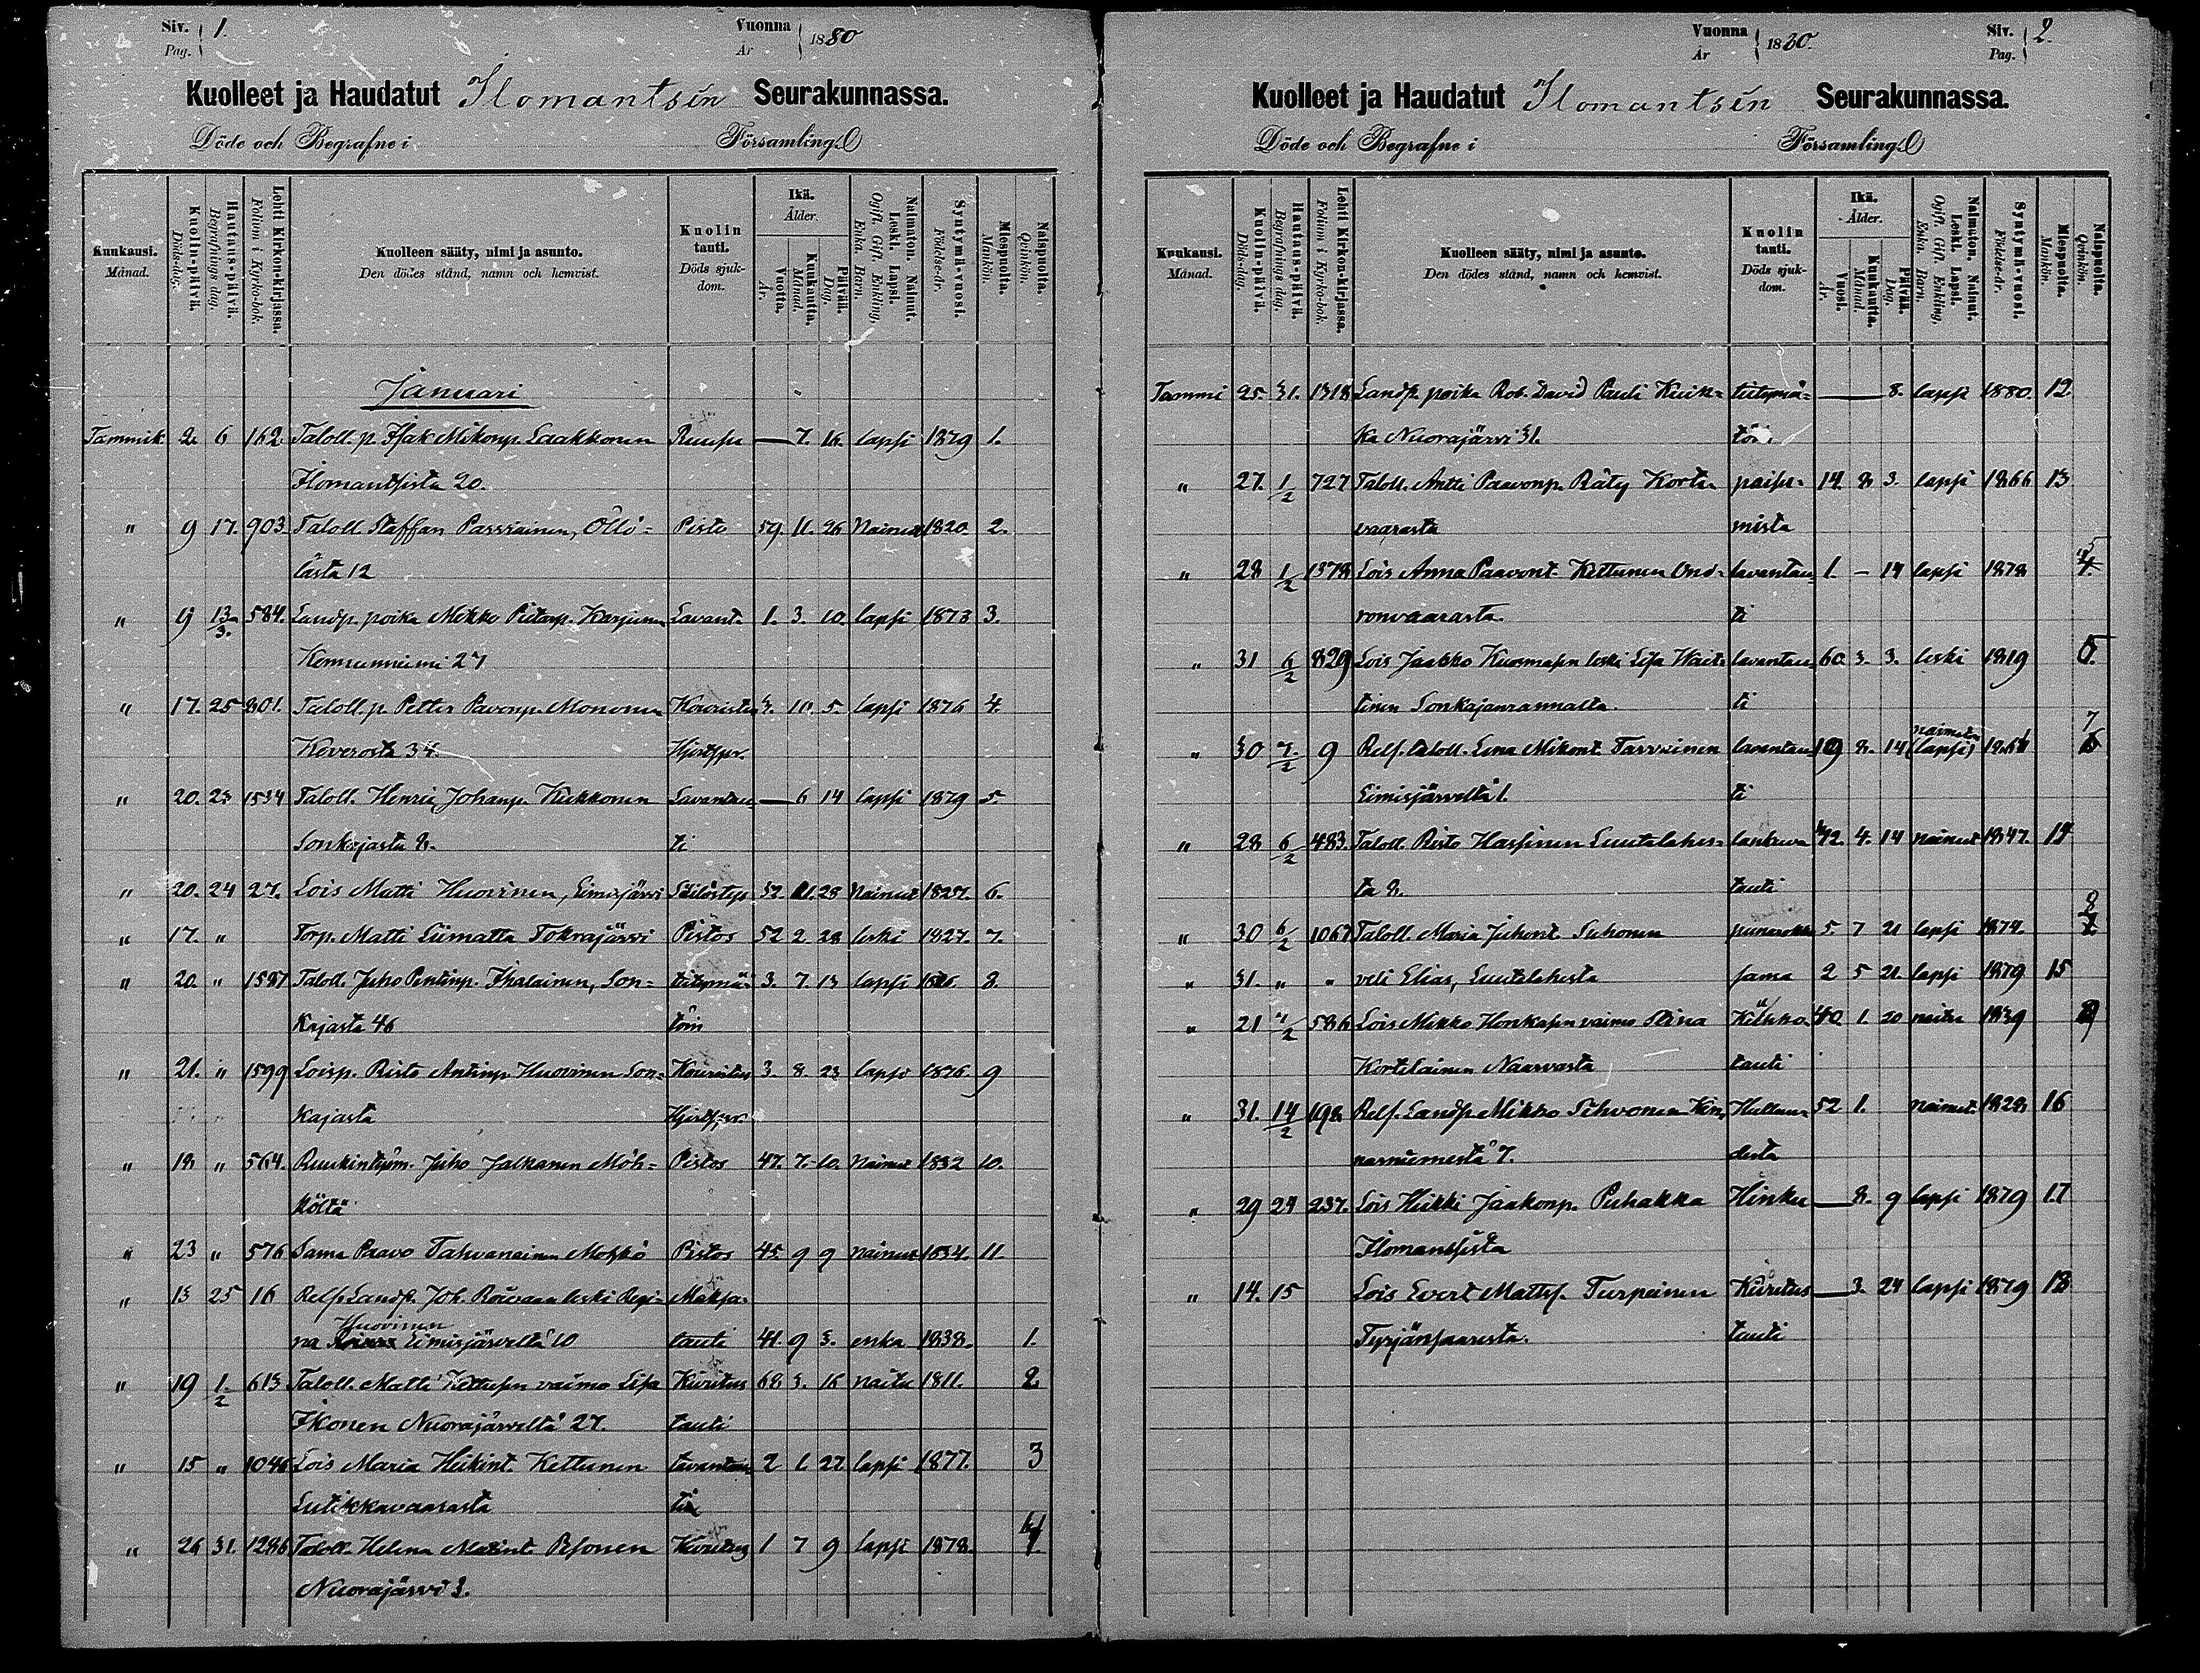 Siv. Pag. 1.
Vuonna År 1880
Kuolleet ja Haudatut Ilomantsin Seurakunnassa.
Döde och Begrafne i Församling.
Kuukausi. Månad.
Kuolin-päivä. Döds-dag.
Hautaus-päivä. Begrafnings dag.
Lehti Kirkon-kirjassa. Folium i Kyrko-bok.
Kuolleen sääty, nimi ja asunto. Den dödes stånd, namn och hemvist.
Kuolin tauti. Döds sjukdom.
Ikä. Ålder.
Vuotta. År.
Kuukautta. Månad.
Päivää. Dag.
Naimaton. Nainut. Leski. Lapsi. Ogift. Gift. Enkling, Enka. Barn.
Syntymä-vuosi. Födelse-år.
Miespuolta. Mankön.
Naispuolta. Qvinkön.
Januari
Tammik. 2. 6 162 Taloll. p. Isak Mikonp. Laakkonen — 7. 16. lapsi 1879 1.
Ilomantsista 20.
" 9 17. 903. Taloll. Staffan Parviainen, Öllö- Pisto 59. 11. 26 Nainut 1820. 2.
lästä 12
" 9 13/3. 584. Landp. poika Mikko Pietarp. Karjunen Lavant. 1. 3. 10. lapsi 1878 3.
27
" 17. 25 801. Taloll. p. Petter Pavonp. Mononen Kouristus 3. 10. 5. lapsi 1876 4.
Koverosta 34.
" 20. 25 1534 Taloll. Henric Johanp. Kukkonen Lavantau — 6 14 lapsi 1879 5.
Sonkajasta 8. ti
" 20. 24 27. Lois Matti Huovinen, Eimisjärvi 52. 11. 28 Nainut 1827. 6.
" 17. " Torp. Matti Liimatta Tokrajärvi Pistos 52 2. 28 leski 1827. 7.
" 20. " 1587 Taloll. Juho Penttinp. Ihalainen, Son- tietymä- 3. 7. 13 lapsi 1876. 8.
kajasta 46 tön
" 21. " 1599 Loisp. Risto Antinp. Huovinen Son- Kouristus 3. 8. 23 lapsi 1876. 9
kajasta
" 18 " 564. Ruukintyöm. Juho Jalkanen Möh- Pistos 47. 7. 10. Nainut 1832 10.
költä
" 23 " 576 Sama Paavo Tahvanainen Möhkö Pistos 45. 9 9 nainut 1834. 11.
" 13 25 16 Relf. Landp. Joh. leski Regi- Maksa-
Huovinen
na Eimisjärveltä 10 tauti 41. 9 3. enka 1838. 1.
" 19 1/2 613 Taloll. Matti Kettusen vaimo Lisa Kuristus 68 3. 16 naitu 1811. 2
Ikonen Nuorajärveltä 27. tauti
" 15 " 1046 Lois Maria Heikint. Kettunen Lavantau 2 1. 27. lapsi 1877. 3
Lutikkavaarasta ti
" 26 31. 1286 Taloll. Helena Martint. Pesonen Kuristus 1 7 9 lapsi 1878. 4
Nuorajärvi 3.
Vuonna År 1880.
Siv. Pag. 2.
Kuolleet ja Haudatut Ilomantsin Seurakunnassa.
Döde och Begrafne i Församling.
Kuukausi. Månad.
Kuolin-päivä. Döds-dag.
Hautaus-päivä. Begrafnings dag.
Lehti Kirkon-kirjassa. Folium i Kyrko-bok.
Kuolleen sääty, nimi ja asunto. Den dödes stånd, namn och hemvist.
Kuolin tauti. Döds sjukdom.
Ikä. Ålder.
Vuosi. År.
Kuukautta. Månad.
Päivää. Dag.
Naimaton. Nainut. Leski. Lapsi. Ogift. Gift. Enkling, Enka. Barn.
Syntymä-vuosi. Födelse-år.
Miespuolta. Mankön.
Naispuolta. Qvinkön.
Tammi 25. 31. 1318 Landp. poika Rob. David Pauli Kuik- tietymä- — 8. lapsi 1880. 12.
ka Nuorajärvi 31. tön
" 27. 1/2 727 Taloll. Antti Paavonp. Räty Korte- paisu- 14. 8 3. lapsi 1866 13
vaarasta mista
" 28 1/2 1378 Lois Anna Paavont. Kettunen Ond- lavantau 1. – 14 lapsi 1878 5
ronvaarasta. ti
" 31 6/2 829 Lois Jaakko Kuosmasen leski Lisa Wait- lavantau 60. 3. 3. leski 1819 6.
tinen Sonkajanrannalta. ti
" 30 7/2 9 Relf. taloll. Lena Mikont. Tarvainen lavantau 19 8. 14 naimaton (lapsi) 1861 7
Eimisjärveltä 1. ti
" 28 6/2 483. Taloll. Risto Hassinen Luutalahes- 42. 4. 14 nainut 1847. 14
ta 8. tauti
" 30 6/2 1067 Taloll. Maria Juhont. Suhonen punarokko 5. 7 21 lapsi 1874. 8
" 31. " " veli Elias, Luutalahesta sama 2 5 21. lapsi 1879 15
" 21 7/2 586 Lois Mikko Honkasen vaimo Stina Keuhko 40. 1. 20 naitu 1839 9
Kortelainen Naarvasta tauti
" 31. 14/2 198 Relf. Landp. Mikko Sihvonen 52 1. nainut. 1828 16
7.
" 29 24 237. Lois Heikki Jaakonp. Puhakka Hinku — 8. 9 lapsi 1879 17
Ilomantsista
" 14. 15 Lois Evert Matts. Turpeinen Kuristus — 3. 24 lapsi 1879 18
Tyrjänsaaresta. tauti